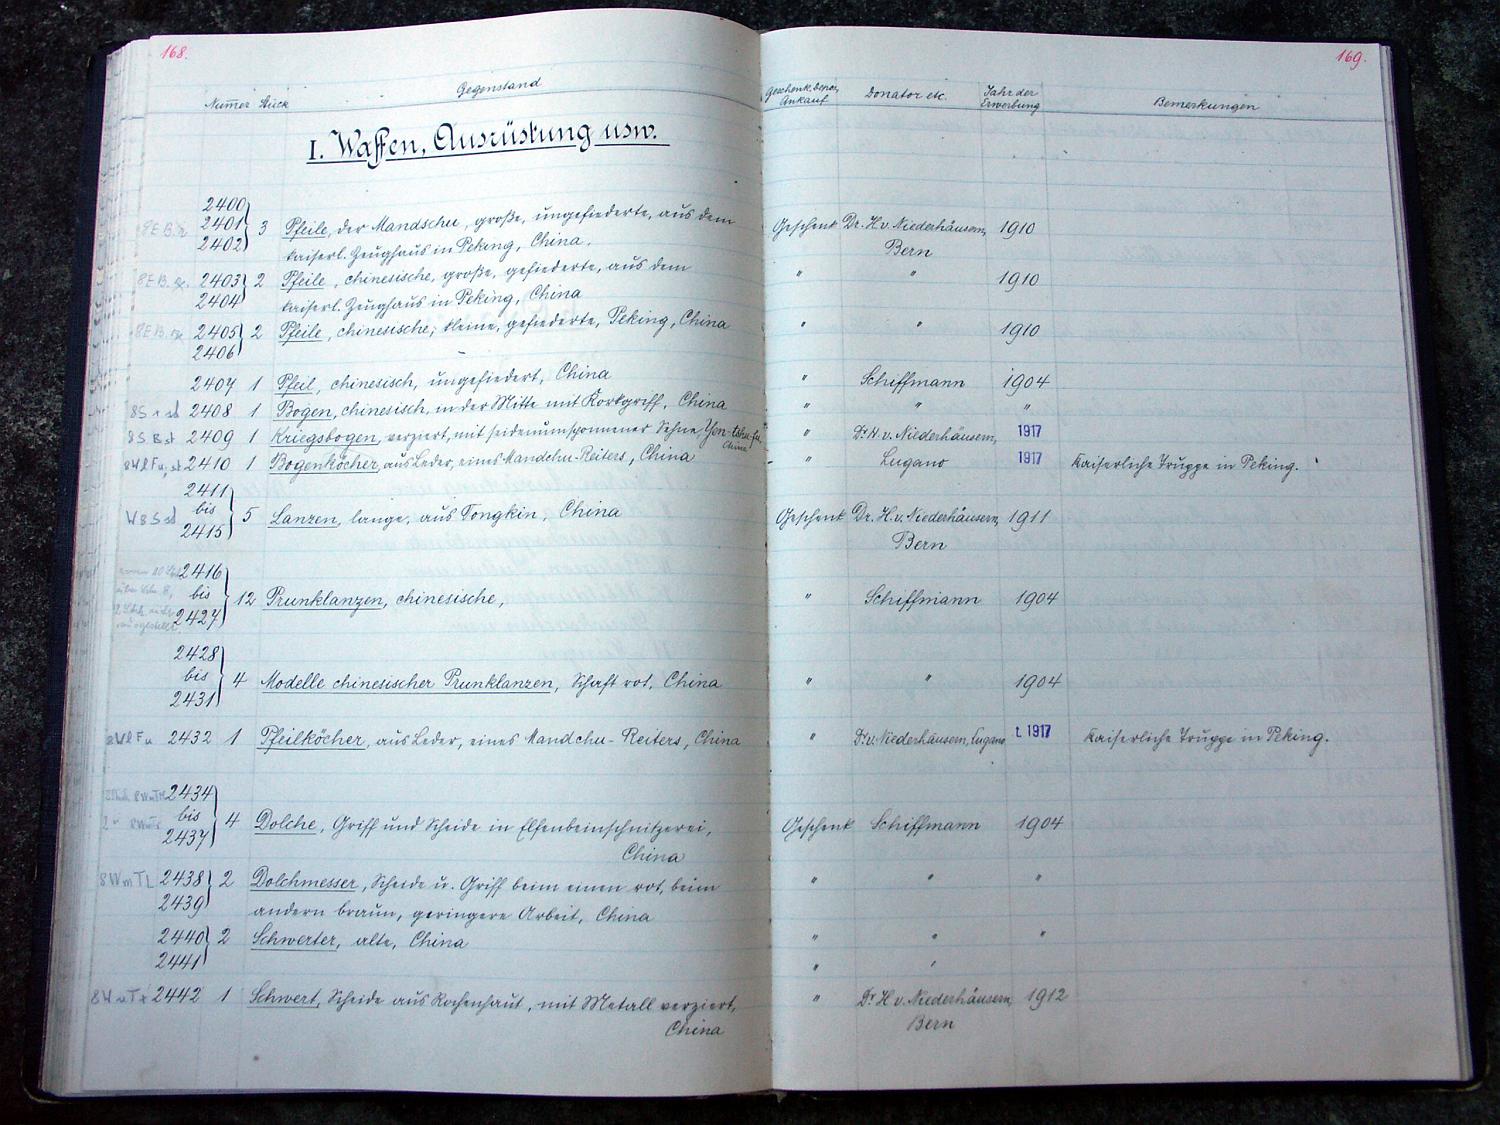 168.
Numer Stück Gegenstand
I. Waffen, Ausrüstung usw.
2400
2401 3 Pfeile, der Mandschu, große, ungefiederte, aus dem
2402 kaiserl. Zeughaus in Peking, China.
2403 2 Pfeile, chinesische, große, gefiederte, aus dem
2404 kaiserl. Zeughaus in Peking, China
2405 2 Pfeile, chinesische, kleine, gefiederte, Peking, China
2406
2407 1 Pfeil, chinesisch, ungefiedert, China
2408 1 Bogen, chinesisch, in der Mitte mit Korkgriff, China
2409 1 Kriegsbogen, verziert, mit seidenumsponnener Sehne,
China
2410 1 Bogenköcher, aus Leder, eines Mandchu-Reiters, China
2411
bis 5 Lanzen, lange, aus Tongkin, China
2415
2416
bis 12 Prunklanzen, chinesische,
2427
2428
bis 4 Modelle chinesischer Prunklanzen, Schaft rot, China
2431
2432 1 Pfeilköcher, aus Leder, eines Mandchu-Reiters, China
2434
bis 4 Dolche, Griff und Scheide in Elfenbeinschnitzerei,
2437 China
8WmTL 2438 2 Dolchmesser, Scheide u. Griff beim einen rot, beim
2439 andern braun, geringere Arbeit, China
2440 2 Schwerter, alte, China
2441
2442 1 Schwert, Scheide aus Rochenhaut, mit Metall verziert,
China
169.
Geschenk, depos. Donator etc. Jahr der Bemerkungen
Ankauf Erwerbung
Geschenk Dr. H. v. Niederhäusern, 1910
Bern
" " 1910
" " 1910
" Schiffmann 1904
" " "
" Dr. H. v. Niederhäusern, 1917
" Lugano 1917 Kaiserliche Truppe in Peking.
Geschenk Dr. H. v. Niederhäusern, 1911
Bern
" Schiffmann 1904
" " 1904
" Dr. v. Niederhäusern, Lugano 1917 Kaiserliche Truppe in Peking.
Geschenk Schiffmann 1904
" " "
" " "
" "
" Dr. H. v. Niederhäusern, 1912
Bern